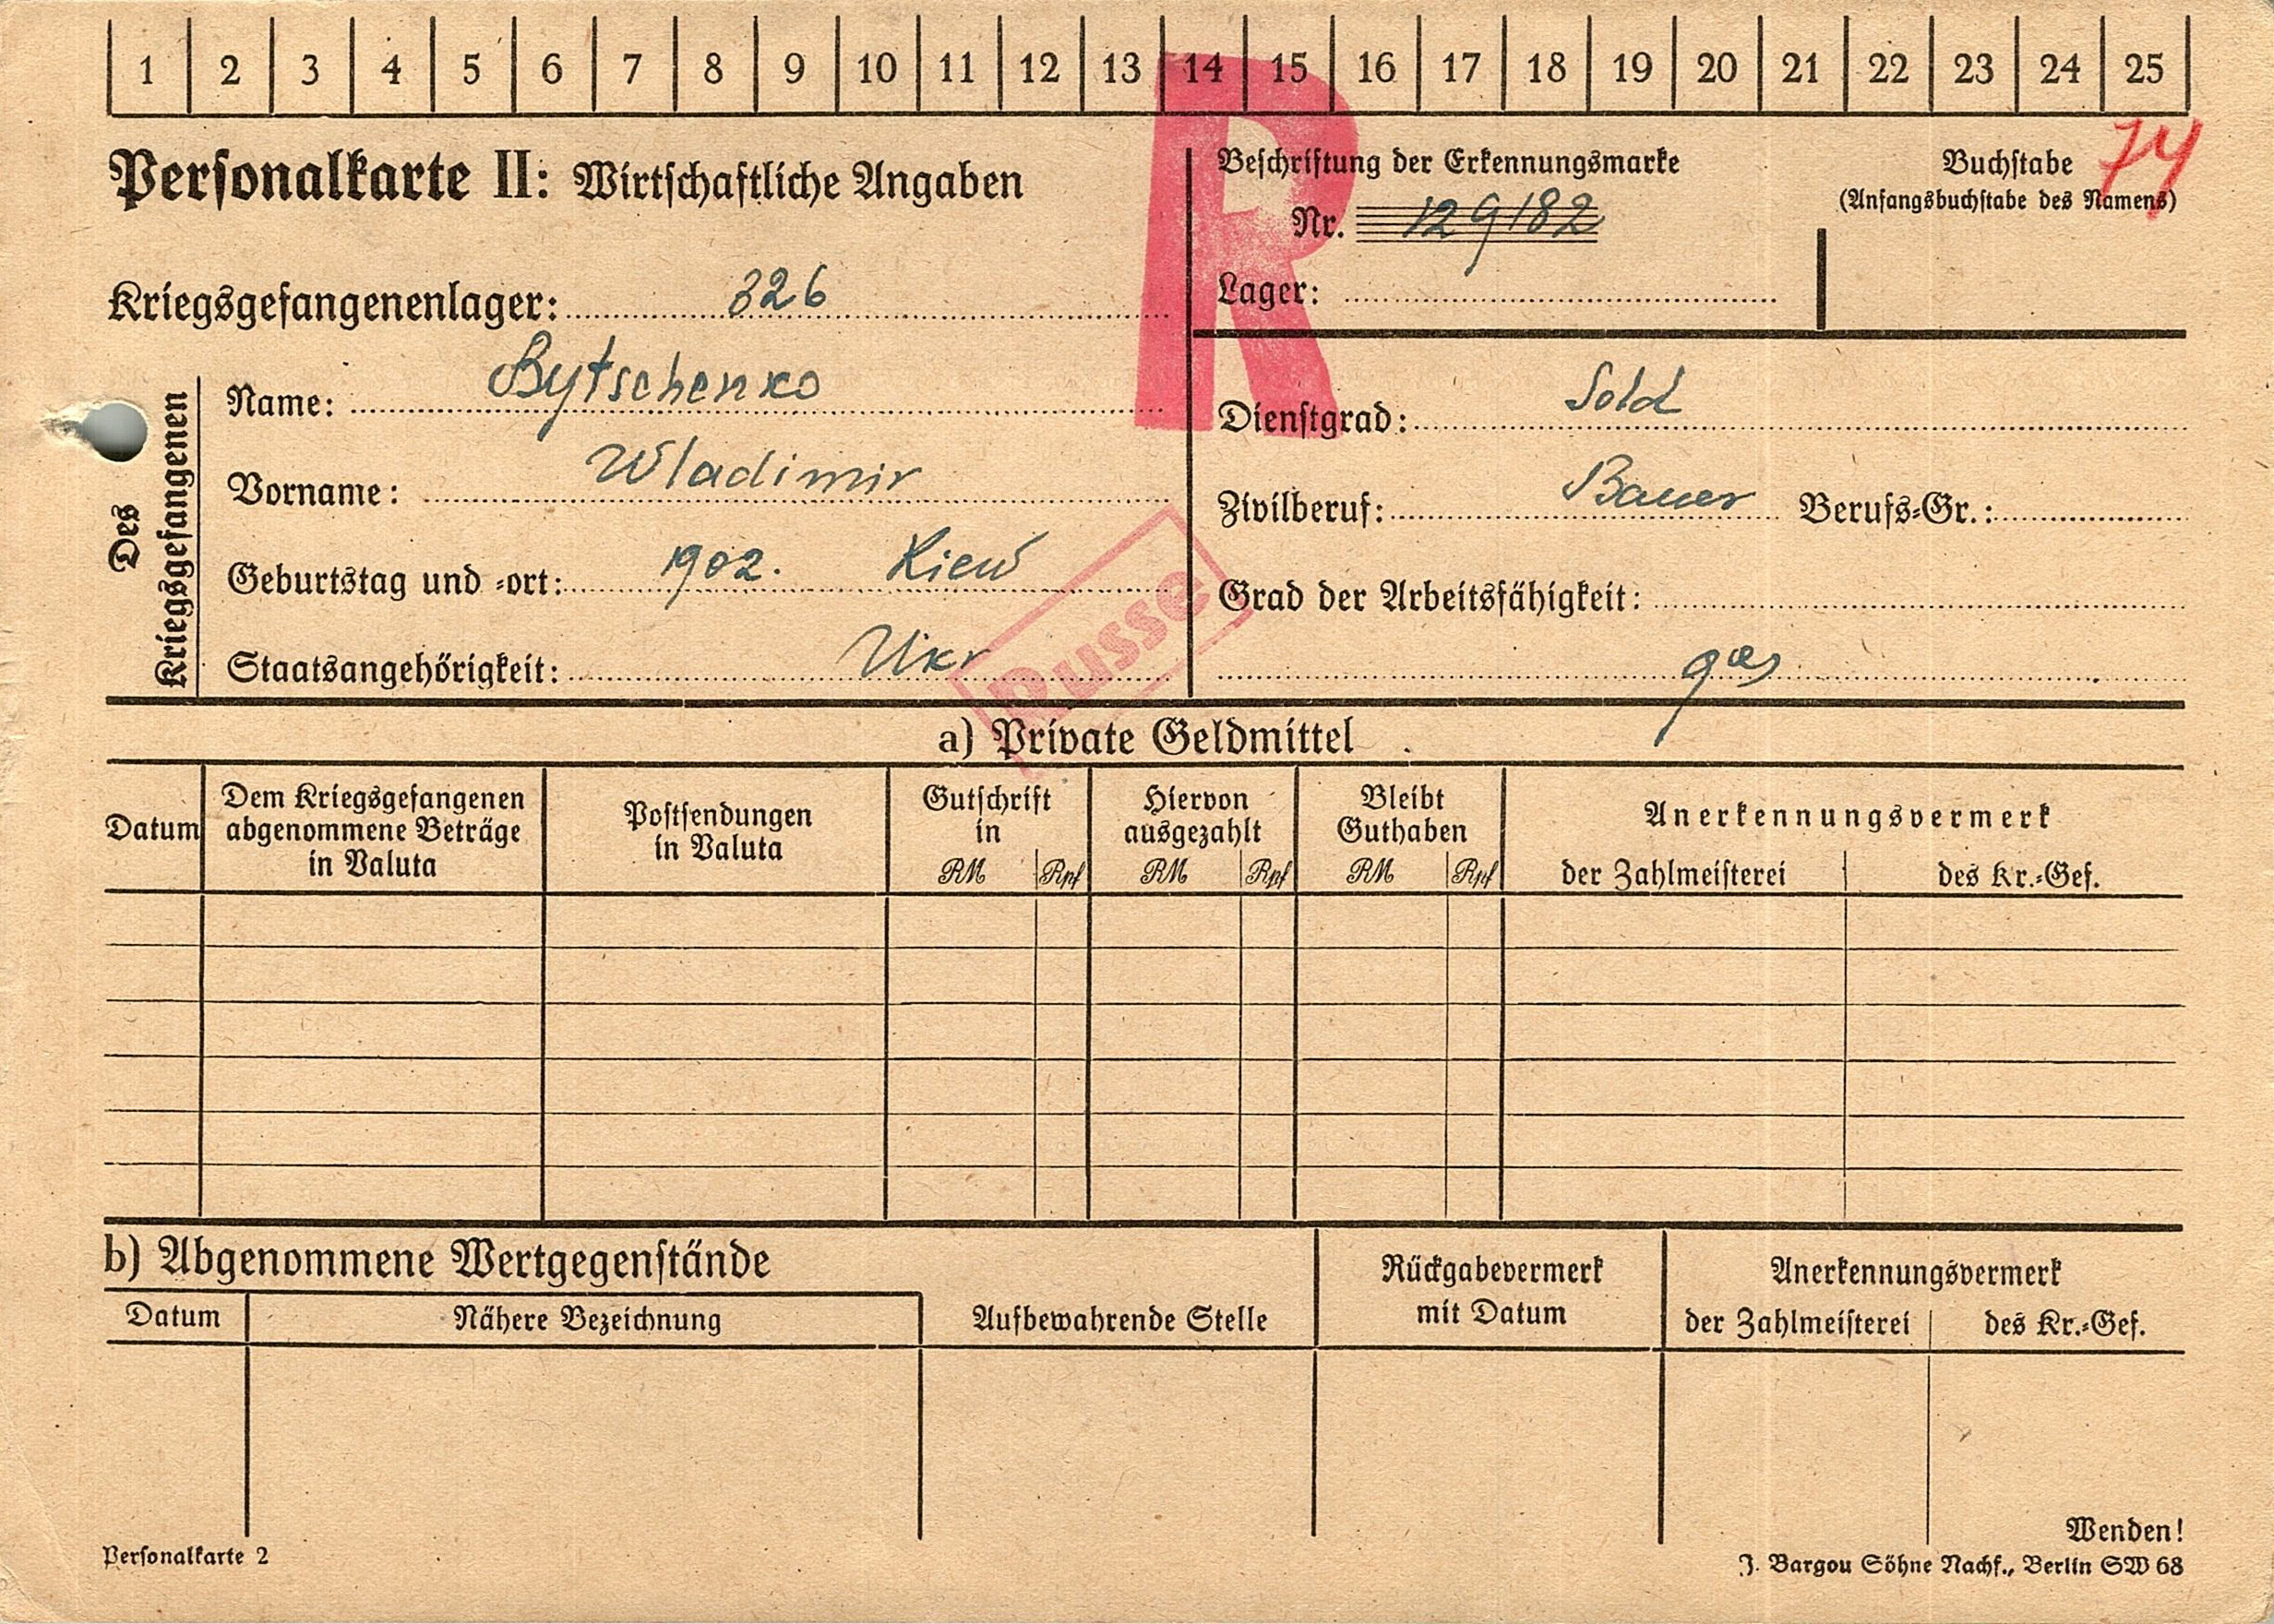 1 2 3 4 5 6 7 8 9 10 11 12 13 14 15 16 17 18 19 20 21 22 23 24 25
R
74
Personalkarte II: Wirtschaftliche Angaben
Beschriftung der Erkennungsmarke
Nr. 129182
Lager:
Buchstabe
(Anfangsbuchstabe des Namens)
Kriegsgefangenenlager: 326
Des Kriegsgefangenen
Name: Bytschenko
Vorname: Wladimir
Geburtstag und -ort: 1902. Kiew
Staatsangehörigkeit: Ukr
Russe
Dienstgrad: Sold
Zivilberuf: Bauer Berufs-Gr.:
Grad der Arbeitsfähigkeit:
a) Private Geldmittel
Datum
Dem Kriegsgefangenen
abgenommene Beträge
in Valuta
Postsendungen
in Valuta
Gutschrift
in
RM Rpf
Hiervon
ausgezahlt
RM Rpf
Bleibt
Guthaben
RM Rpf
Anerkennungsvermerk
der Zahlmeisterei des Kr.-Gef.
b) Abgenommene Wertgegenstände
Datum Nähere Bezeichnung
Aufbewahrende Stelle
Rückgabevermerk
mit Datum
Anerkennungsvermerk
der Zahlmeisterei des Kr.-Gef.
Wenden!
Personalkarte 2
J. Bargou Söhne Nachf., Berlin SW 68